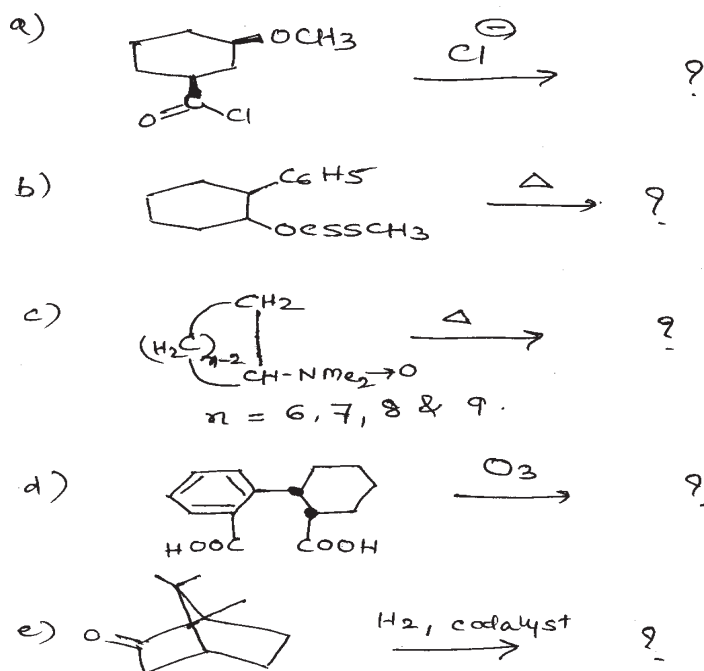 a) OCH3 Cl⊖ ?
O C Cl
b) C6H5 Δ ?
OCSSCH3
c) CH2 Δ ?
(H2C)n-2
CH-NMe2→O
n = 6, 7, 8 & 9.
d) O3 ?
HOOC COOH
e) O H2, catalyst ?